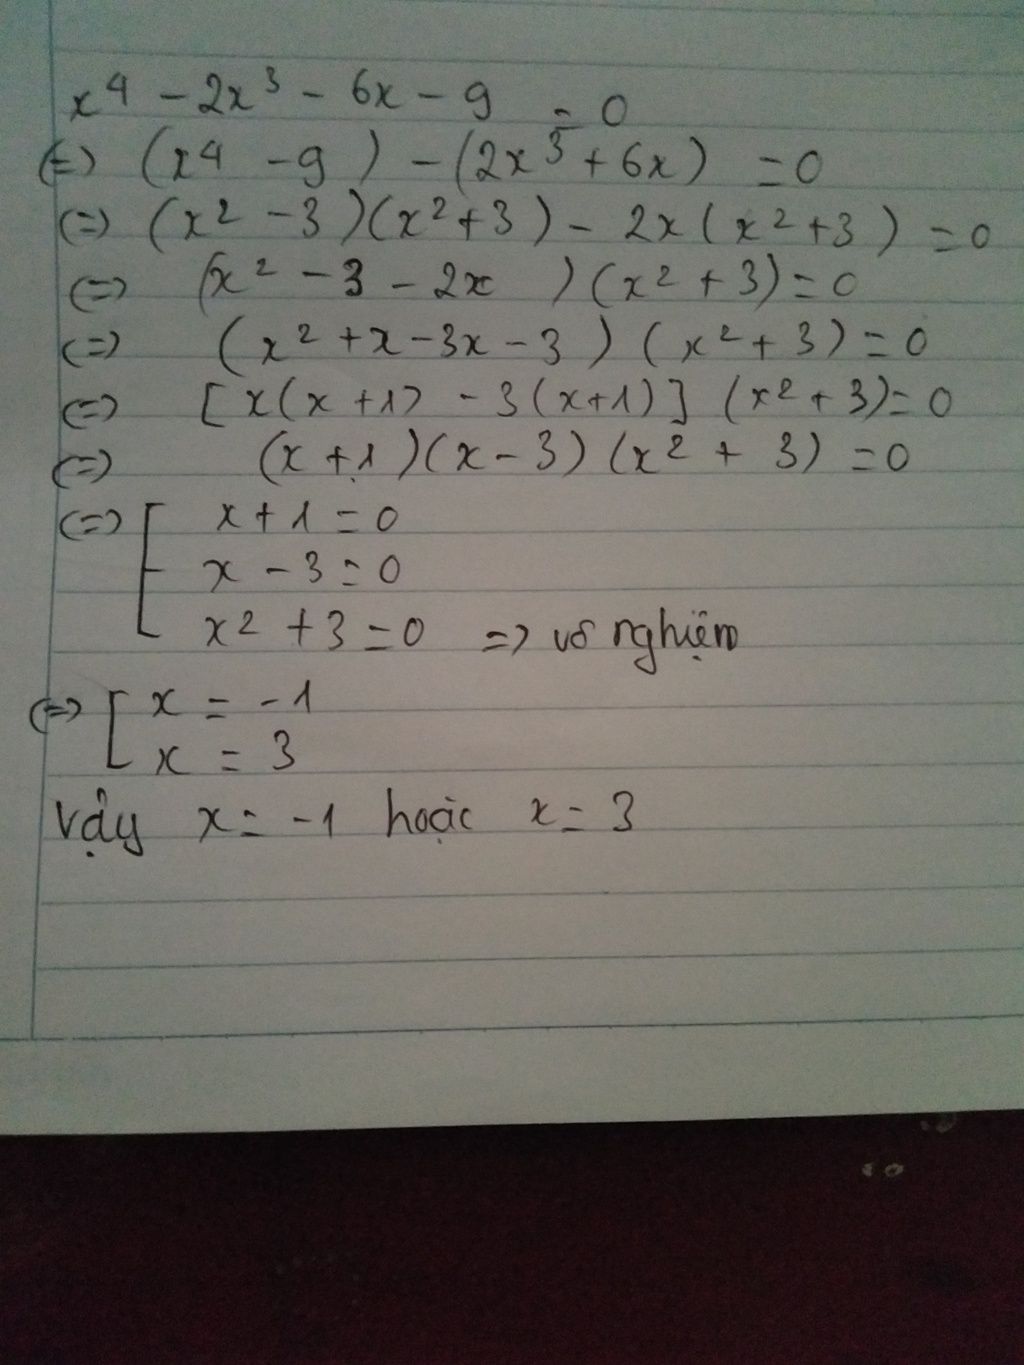 x⁴ - 2x³ - 6x - 9 = 0
(=) (x⁴ - 9) - (2x³ + 6x) = 0
(=) (x² - 3)(x² + 3) - 2x(x² + 3) = 0
(=) (x² - 3 - 2x)(x² + 3) = 0
(=) (x² + x - 3x - 3)(x² + 3) = 0
(=) [x(x + 1) - 3(x + 1)](x² + 3) = 0
(=) (x + 1)(x - 3)(x² + 3) = 0
(=) [ x + 1 = 0
x - 3 = 0
x² + 3 = 0 => vô nghiệm
(=) [ x = -1
x = 3
Vậy x = -1 hoặc x = 3